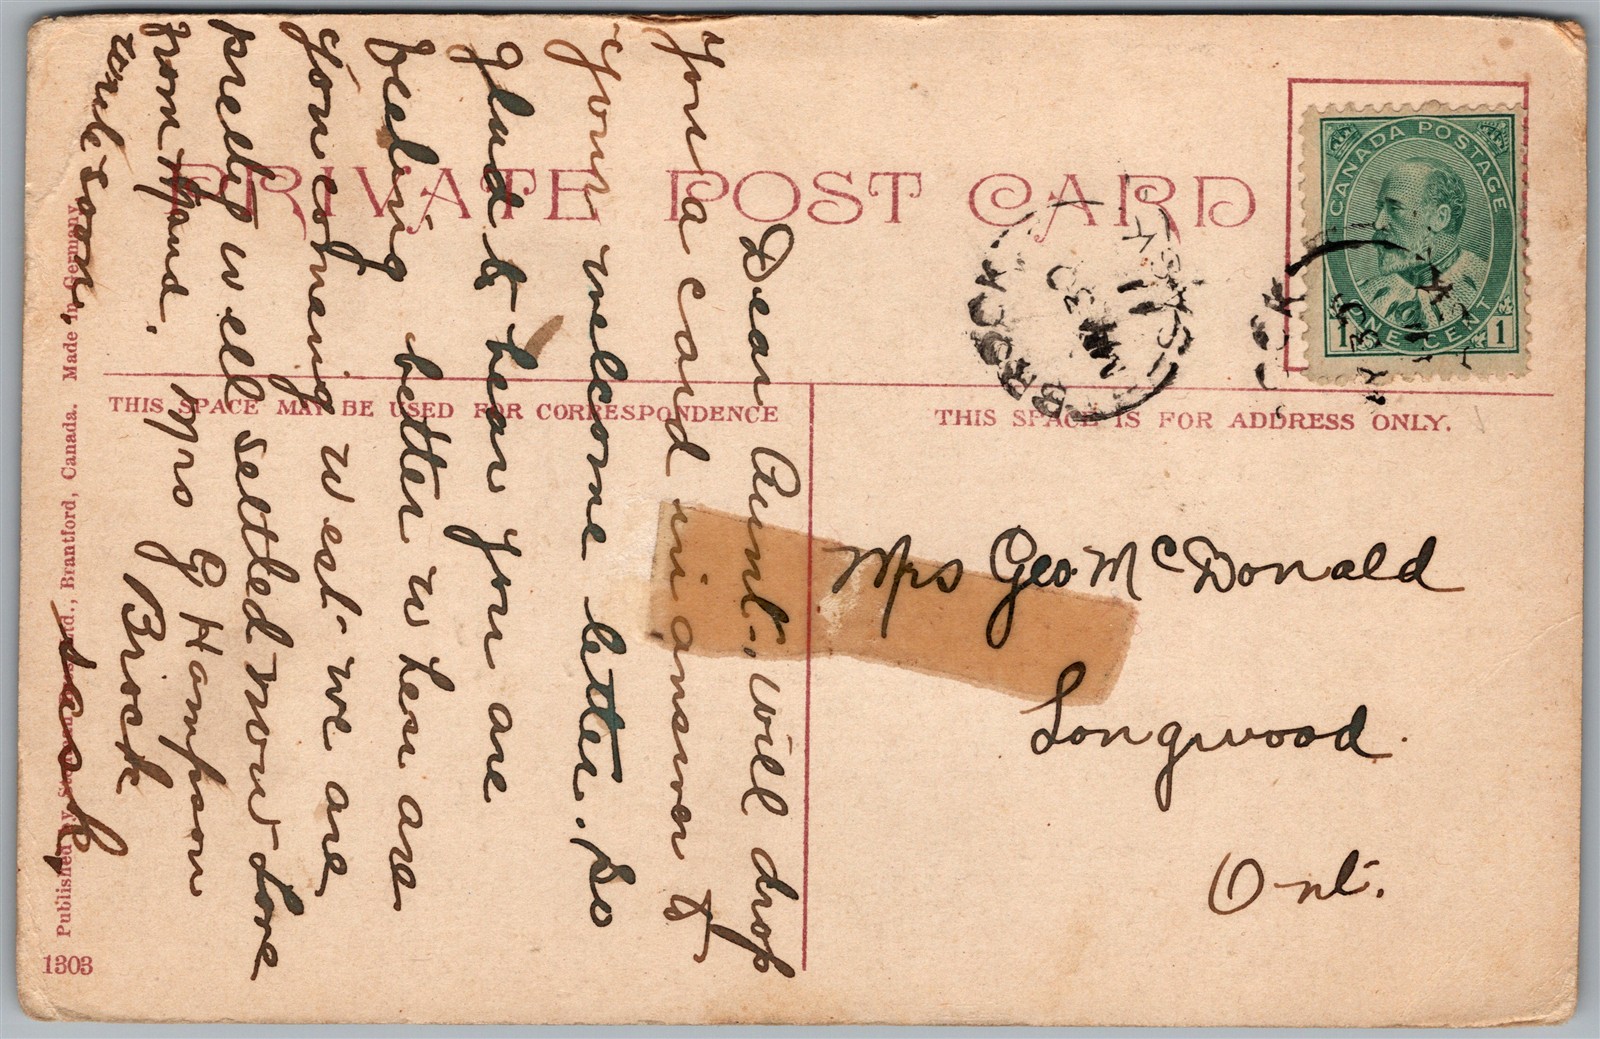 PRIVATE POST CARD
CANADA POSTAGE
1 ONE CENT 1
BROCK
THIS SPACE MAY BE USED FOR CORRESPONDENCE
THIS SPACE IS FOR ADDRESS ONLY.
Dear Aunt. will drop
you a card in answer to
your welcome letter. so
glad to hear you are
feeling better when are
you comeing west. we are
pretty well settled now Love
from Maud. Mrs G Hampson
write soon. Brock
Sask,
Mrs Geo. McDonald
Longwood.
Ont.
Published by Brantford, Canada. Made in Germany
1303